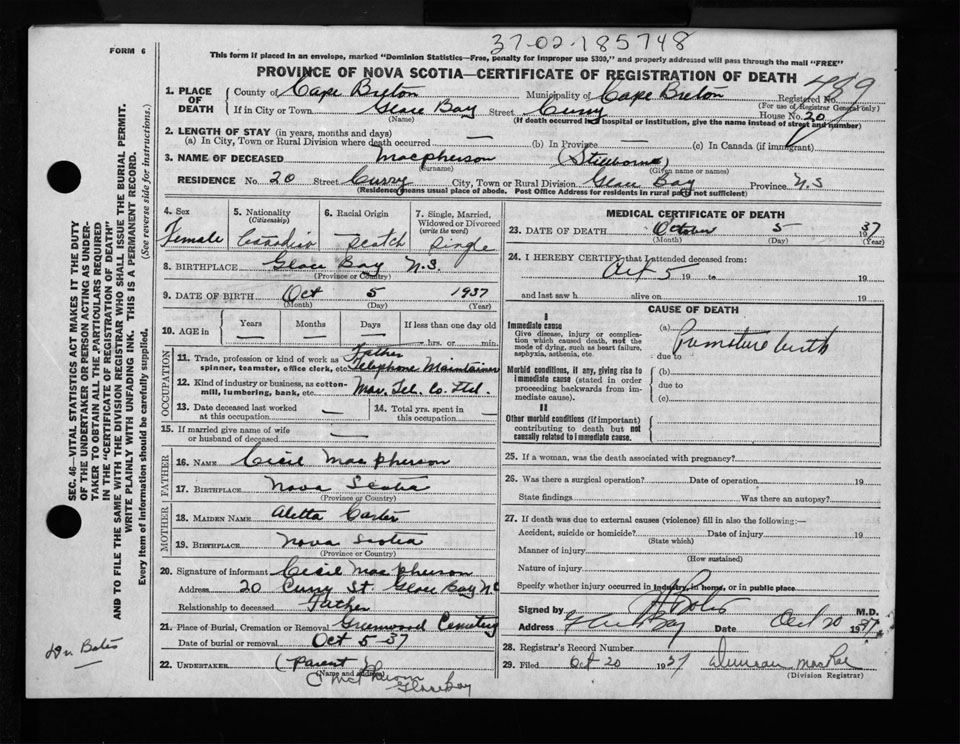 37-02-185748
FORM 6
This form if placed in an envelope, marked "Dominion Statistics—Free, penalty for improper use $300," and properly addressed will pass through the mail "FREE"
PROVINCE OF NOVA SCOTIA—CERTIFICATE OF REGISTRATION OF DEATH
1. PLACE OF DEATH
County of Cape Breton Municipality of Cape Breton Registered No. 489
(For use of Registrar General only)
If in City or Town Glace Bay Street Curry House No. 20
(Name) (If death occurred in a hospital or institution, give the name instead of street and number)
2. LENGTH OF STAY (in years, months and days)
(a) In City, Town or Rural Division where death occurred — (b) In Province — (c) In Canada (if immigrant)
3. NAME OF DECEASED Macpherson (Stillborn)
(Surname) (Given name or names)
RESIDENCE No. 20 Street Curry City, Town or Rural Division Glace Bay Province N.S
(Residence means usual place of abode. Post Office Address for residents in rural parts not sufficient)
4. Sex Female
5. Nationality (Citizenship) Canadian
6. Racial Origin Scotch
7. Single, Married, Widowed or Divorced (write the word) Single
8. BIRTHPLACE Glace Bay N.S.
(Province or Country)
9. DATE OF BIRTH Oct 5 1937
(Month) (Day) (Year)
10. AGE in Years Months Days If less than one day old
— — — hrs. or min.
OCCUPATION
11. Trade, profession or kind of work as spinner, teamster, office clerk, etc. Father Telephone Maintainer
12. Kind of industry or business, as cotton-mill, lumbering, bank, etc. Mar. Tel. Co. Ltd.
13. Date deceased last worked at this occupation —
14. Total yrs. spent in this occupation —
15. If married give name of wife or husband of deceased —
FATHER
16. NAME Cecil MacPherson
17. BIRTHPLACE Nova Scotia
(Province or Country)
MOTHER
18. MAIDEN NAME Aletta Carter
19. BIRTHPLACE Nova Scotia
(Province or Country)
20. Signature of informant Cecil MacPherson
Address 20 Curry St Glace Bay
Relationship to deceased Father
21. Place of Burial, Cremation or Removal Greenwood Cemetery
Date of burial or removal Oct 5-37
22. UNDERTAKER (Parent)
(Name and address)
Glace Bay
MEDICAL CERTIFICATE OF DEATH
23. DATE OF DEATH October 5 1937
(Month) (Day) (Year)
24. I HEREBY CERTIFY that I attended deceased from:
Oct 5 19 to 19
and last saw h alive on 19
CAUSE OF DEATH
I
Immediate cause
Give disease, injury or complication which caused death, not the mode of dying, such as heart failure, asphyxia, asthenia, etc.
(a) Premature birth
due to
Morbid conditions, if any, giving rise to immediate cause (stated in order proceeding backwards from immediate cause).
(b)
due to
(c)
II
Other morbid conditions (if important) contributing to death but not causally related to immediate cause.
25. If a woman, was the death associated with pregnancy?
26. Was there a surgical operation? Date of operation 19
State findings Was there an autopsy?
27. If death was due to external causes (violence) fill in also the following:—
Accident, suicide or homicide? Date of injury 19
(State which)
Manner of injury
(How sustained)
Nature of injury
Specify whether injury occurred in industry, in home, or in public place
Signed by M.D.
Address Glace Bay Date Oct 20 1937
28. Registrar's Record Number
29. Filed Oct 20 1937 Duncan MacRae
(Division Registrar)
SEC. 46—VITAL STATISTICS ACT MAKES IT THE DUTY OF THE UNDERTAKER OR PERSON ACTING AS UNDERTAKER TO OBTAIN ALL THE PARTICULARS REQUIRED IN THE "CERTIFICATE OF REGISTRATION OF DEATH"
AND TO FILE THE SAME WITH THE DIVISION REGISTRAR WHO SHALL ISSUE THE BURIAL PERMIT.
WRITE PLAINLY WITH UNFADING INK. THIS IS A PERMANENT RECORD.
Every item of information should be carefully supplied. (See reverse side for instructions.)